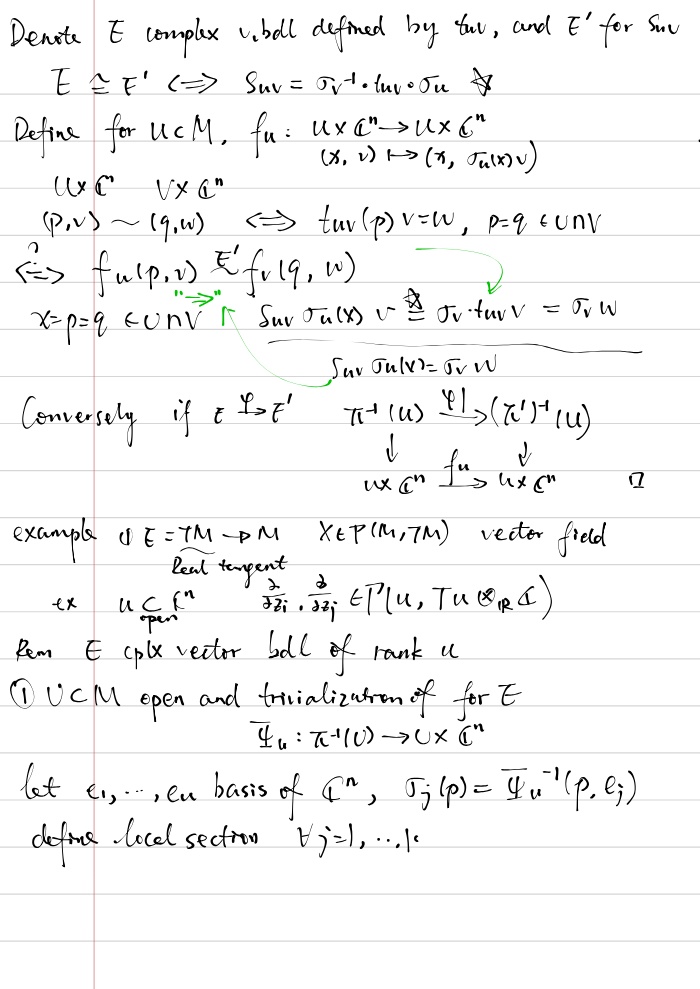 Denote E complex v.bdl defined by tuv, and E' for Suv
E ≅ E' <=> Suv = σv⁻¹·tuv·σu ☆
Define for U⊂M, fu: U×ℂⁿ → U×ℂⁿ
(x, v) ↦ (x, σu(x)v)
U×ℂⁿ V×ℂⁿ
(p,v) ~ (q,w) <=> tuv(p)v=w, p=q ∈ U∩V
?
<=> fu(p,v) ~E' fv(q,w)
"=>"
x=p=q ∈U∩V Suv σu(x) v ≝☆ σv·tuv v = σv w
Suv σu(x)= σv w
Conversely if E →φ E' π⁻¹(U) →φ| (π')⁻¹(U)
↓ ↓
U×ℂⁿ →fu U×ℂⁿ □
example ① E = TM → M X∈Γ(M,TM) vector field
Real tangent
ex U ⊂ ℂⁿ ∂/∂zi, ∂/∂z̄j ∈Γ(U, TU ⊗ℝ ℂ)
open
Rem E cplx vector bdl of rank n
① U⊂M open and trivialization of for E
Ψ̄u : π⁻¹(U) → U×ℂⁿ
let e1,···,en basis of ℂⁿ, σj(p) = Ψ̄u⁻¹(p, ej)
define local section ∀j=1,···,